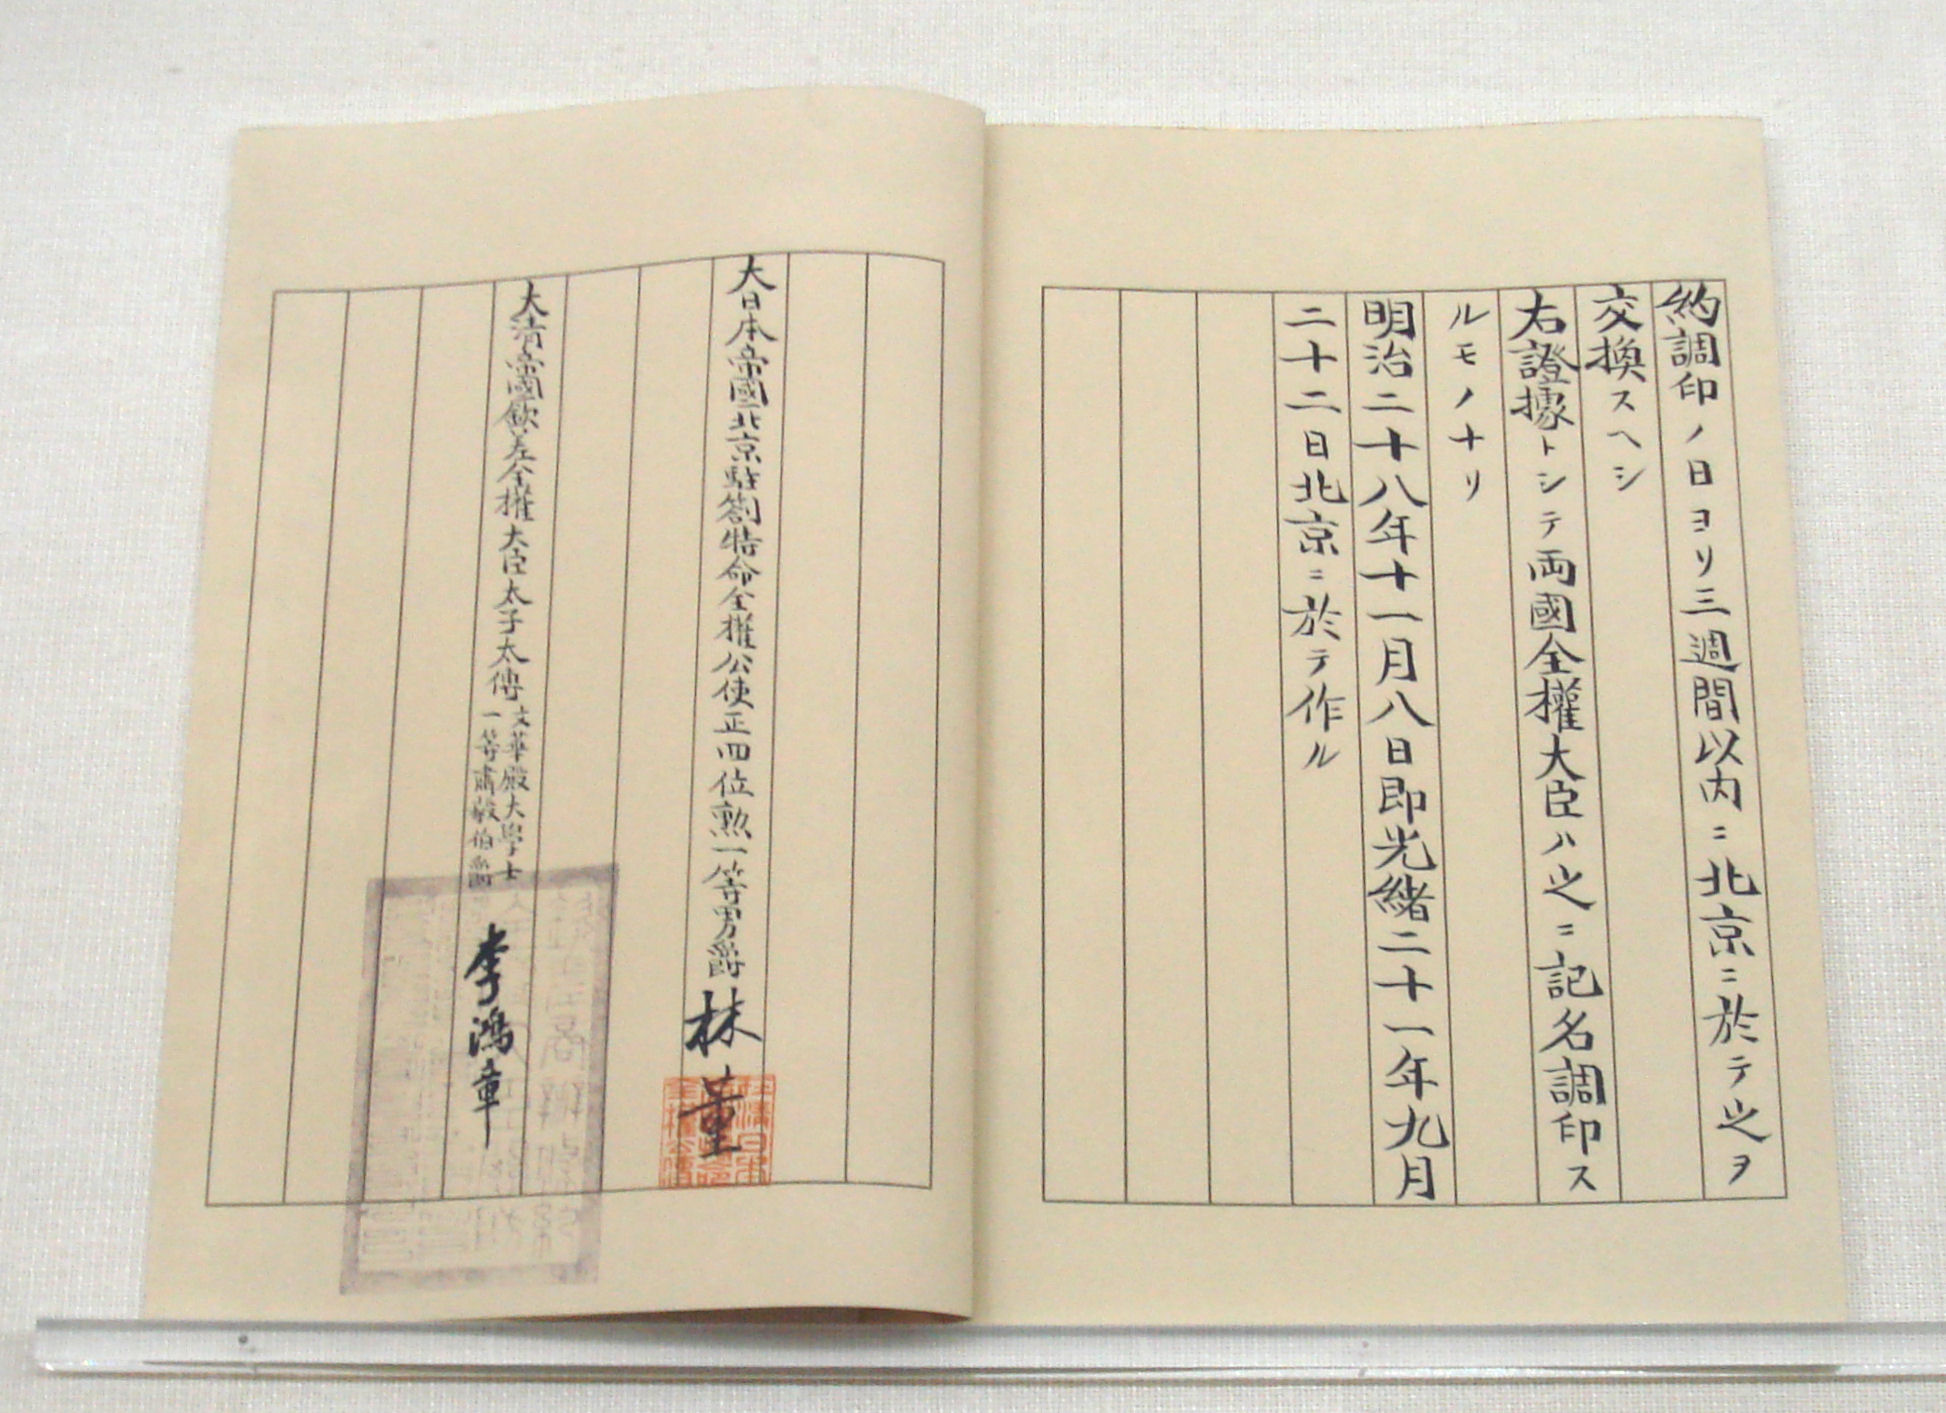 約調印ノ日ヨリ三週間以内ニ北京ニ於テ之ヲ
交換スヘシ
右證據トシテ両國全權大臣ハ之ニ記名調印ス
ルモノナリ
明治二十八年十一月八日即光緒二十一年九月
二十二日北京ニ於テ作ル
大日本帝國北京駐劄特命全權公使正四位勲一等男爵 林董
大清帝國欽差全權大臣太子太傅
文華殿大學士
一等肅毅伯爵
李鴻章